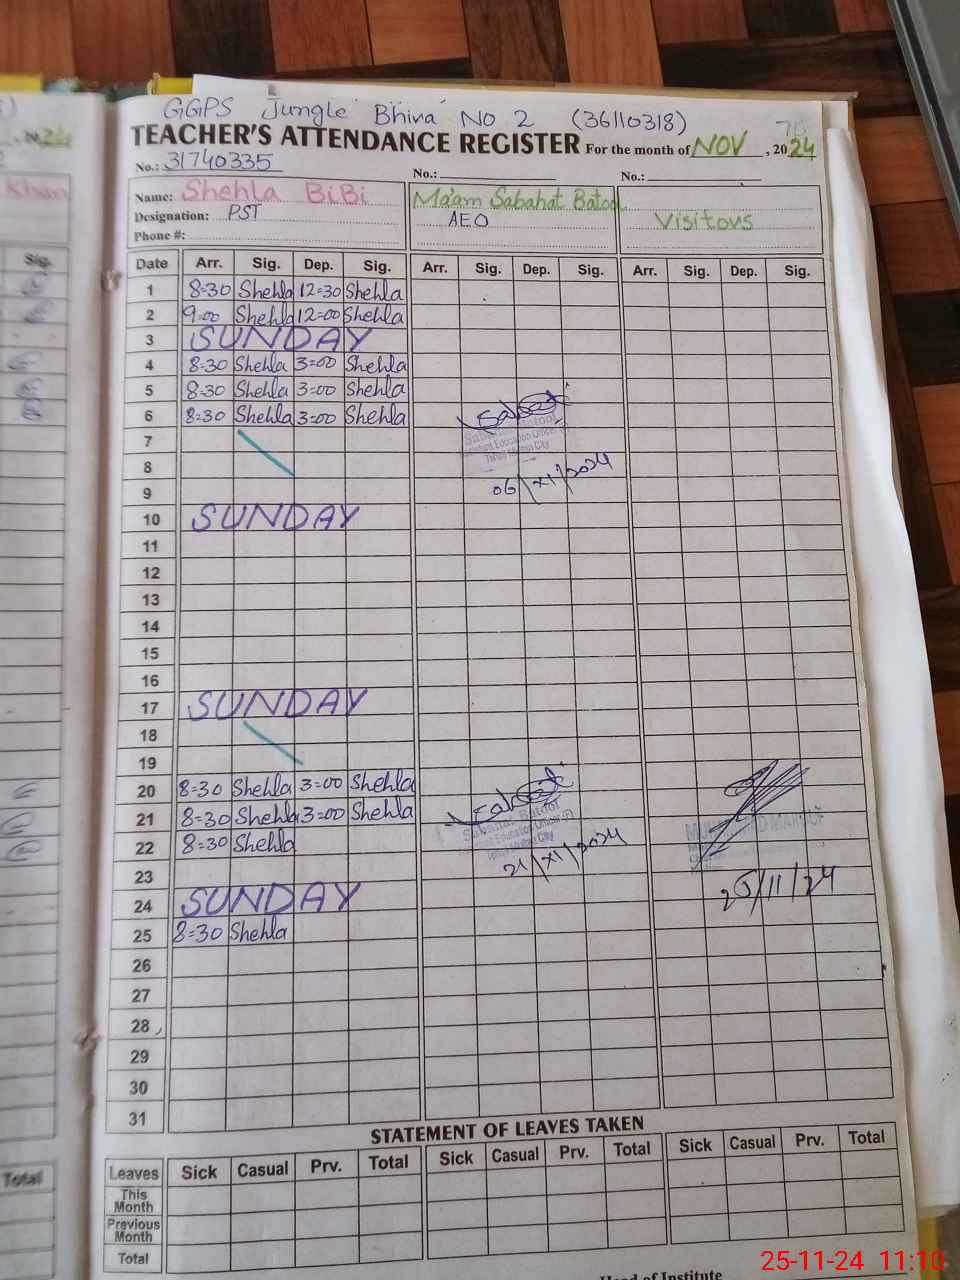 GGPS Jungle Bhira No 2 (36110318)
TEACHER'S ATTENDANCE REGISTER For the month of NOV, 2024
No.: 31740335 No.: No.:
Name: Shehla BiBi Ma'am Sabahat Batool
Designation: PST AEO Visitors
Phone #:
Date Arr. Sig. Dep. Sig. Arr. Sig. Dep. Sig. Arr. Sig. Dep. Sig.
1 8=30 Shehla 12=30 Shehla
2 9=00 Shehla 12=00 Shehla
3 SUNDAY
4 8=30 Shehla 3=00 Shehla
5 8=30 Shehla 3=00 Shehla
6 8=30 Shehla 3=00 Shehla
7
Sabahat Batool
Assistant Education Officer (F)
8
06/XI/2024
9
10 SUNDAY
11
12
13
14
15
16
17 SUNDAY
18
19
20 8=30 Shehla 3=00 Shehla
21 8=30 Shehla 3=00 Shehla
Sabahat Batool
Assistant Education Officer (F)
22 8=30 Shehla
21/XI/2024
23
25/11/24
24 SUNDAY
25 8=30 Shehla
26
27
28
29
30
31
STATEMENT OF LEAVES TAKEN
Leaves Sick Casual Prv. Total Sick Casual Prv. Total Sick Casual Prv. Total
This Month
Previous Month
Total
Head of Institute
25-11-24 11:10